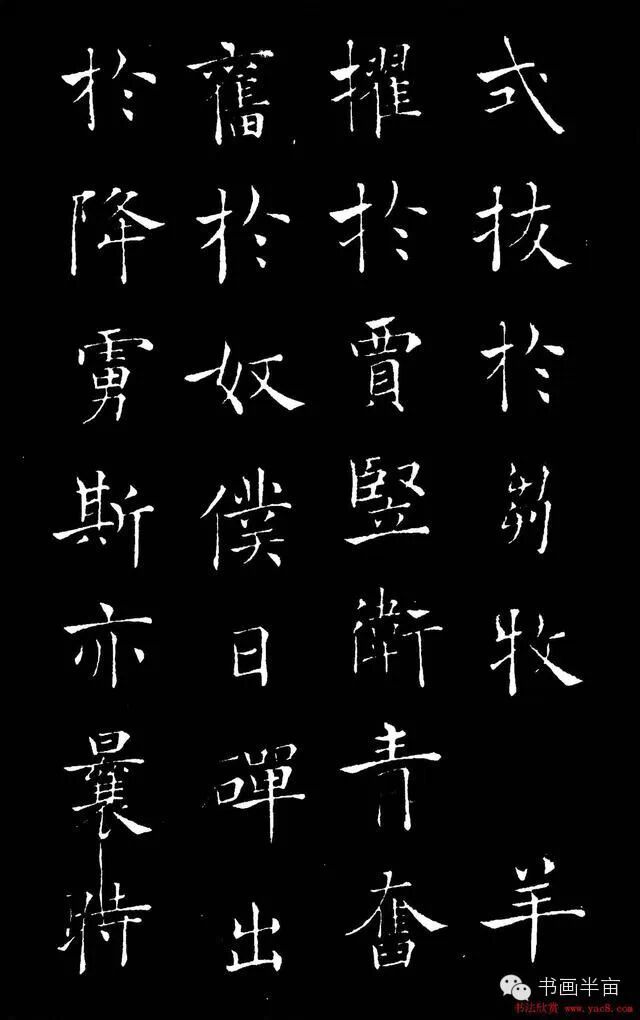 式拔於芻牧 羊
擢於賈豎衛青奮
奮於奴僕日磾出
於降虜斯亦曩時
书画半亩
书法欣赏 www.yac8.com